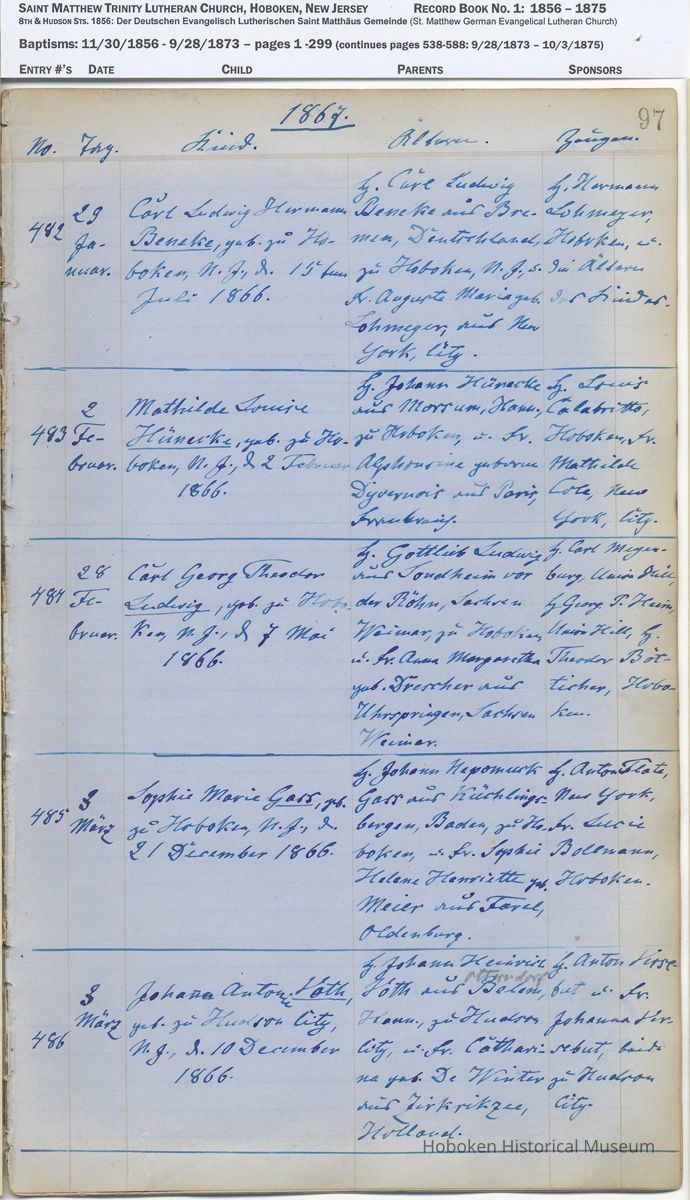 SAINT MATTHEW TRINITY LUTHERAN CHURCH, HOBOKEN, NEW JERSEY RECORD BOOK NO. 1: 1856 – 1875
8TH & HUDSON STS. 1856: Der Deutschen Evangelisch Lutherischen Saint Matthäus Gemeinde (St. Matthew German Evangelical Lutheran Church)
Baptisms: 11/30/1856 - 9/28/1873 – pages 1 -299 (continues pages 538-588: 9/28/1873 – 10/3/1875)
ENTRY #'S DATE CHILD PARENTS SPONSORS
1867. 97
No. Tag. Kind. Ältern. Zeugen.
482
29
Ja-
nuar.
Carl Ludwig Hermann
Beneke, geb. zu Ho-
boken, N. J., d. 15ten
Juli 1866.
H. Carl Ludwig
Beneke aus Bre-
men, Deutschland,
zu Hoboken, N. J., u.
Fr. Auguste Maria geb.
Lohmeyer, aus New
York, City.
H. Hermann
Lohmeyer,
Hoboken, u.
die Ältern
des Kindes.
483
2
Fe-
bruar.
Mathilde Louise
Hünecke, geb. zu Ho-
boken, N. J., d. 2 Februar
1866.
H. Johann Hünecke
aus Morsum, Hann.,
zu Hoboken, u. Fr.
Alphonsine geborne
Dyvernois aus Paris,
Frankreich.
H. Louis
Calabritto,
Hoboken, Fr.
Mathilde
Cole, New
York, City.
484
28
Fe-
bruar.
Carl Georg Theodor
Ludwig, geb. zu Hobo-
ken, N. J., d. 7 Mai
1866.
H. Gottlieb Ludwig,
aus Sondheim vor
der Röhn, Sachsen
Weimar, zu Hoboken,
u. Fr. Anna Margaretha
geb. Drescher aus
Uhrspringen, Sachsen
Weimar.
H. Carl Meyen-
burg, Union Hill,
H. Georg P. Heim,
Union Hill, H.
Theodor Böt-
ticher, Hobo-
ken.
485
3
März
Sophie Marie Gass, geb.
zu Hoboken, N. J., d.
21 December 1866.
H. Johann Nepomuck
Gass aus Küchlings-
bergen, Baden, zu Ho-
boken, u. Fr. Sophie
Helene Henriette geb.
Meier aus Varel,
Oldenburg.
H. Anton Plate,
New York,
Fr. Lucie
Bollmann,
Hoboken.
486
3
März
Johann Anton Vöth,
geb. zu Hudson City,
N. J., d. 10 December
1866.
H. Johann Heinrich
Otterndorf
Vöth aus Belom,
Hann., zu Hudson
City, u. Fr. Cathari-
na geb. De Winter
aus Zirkrikzee,
Holland.
H. Anton
u. Fr.
Johanna
beide
zu Hudson
City.
Hoboken Historical Museum